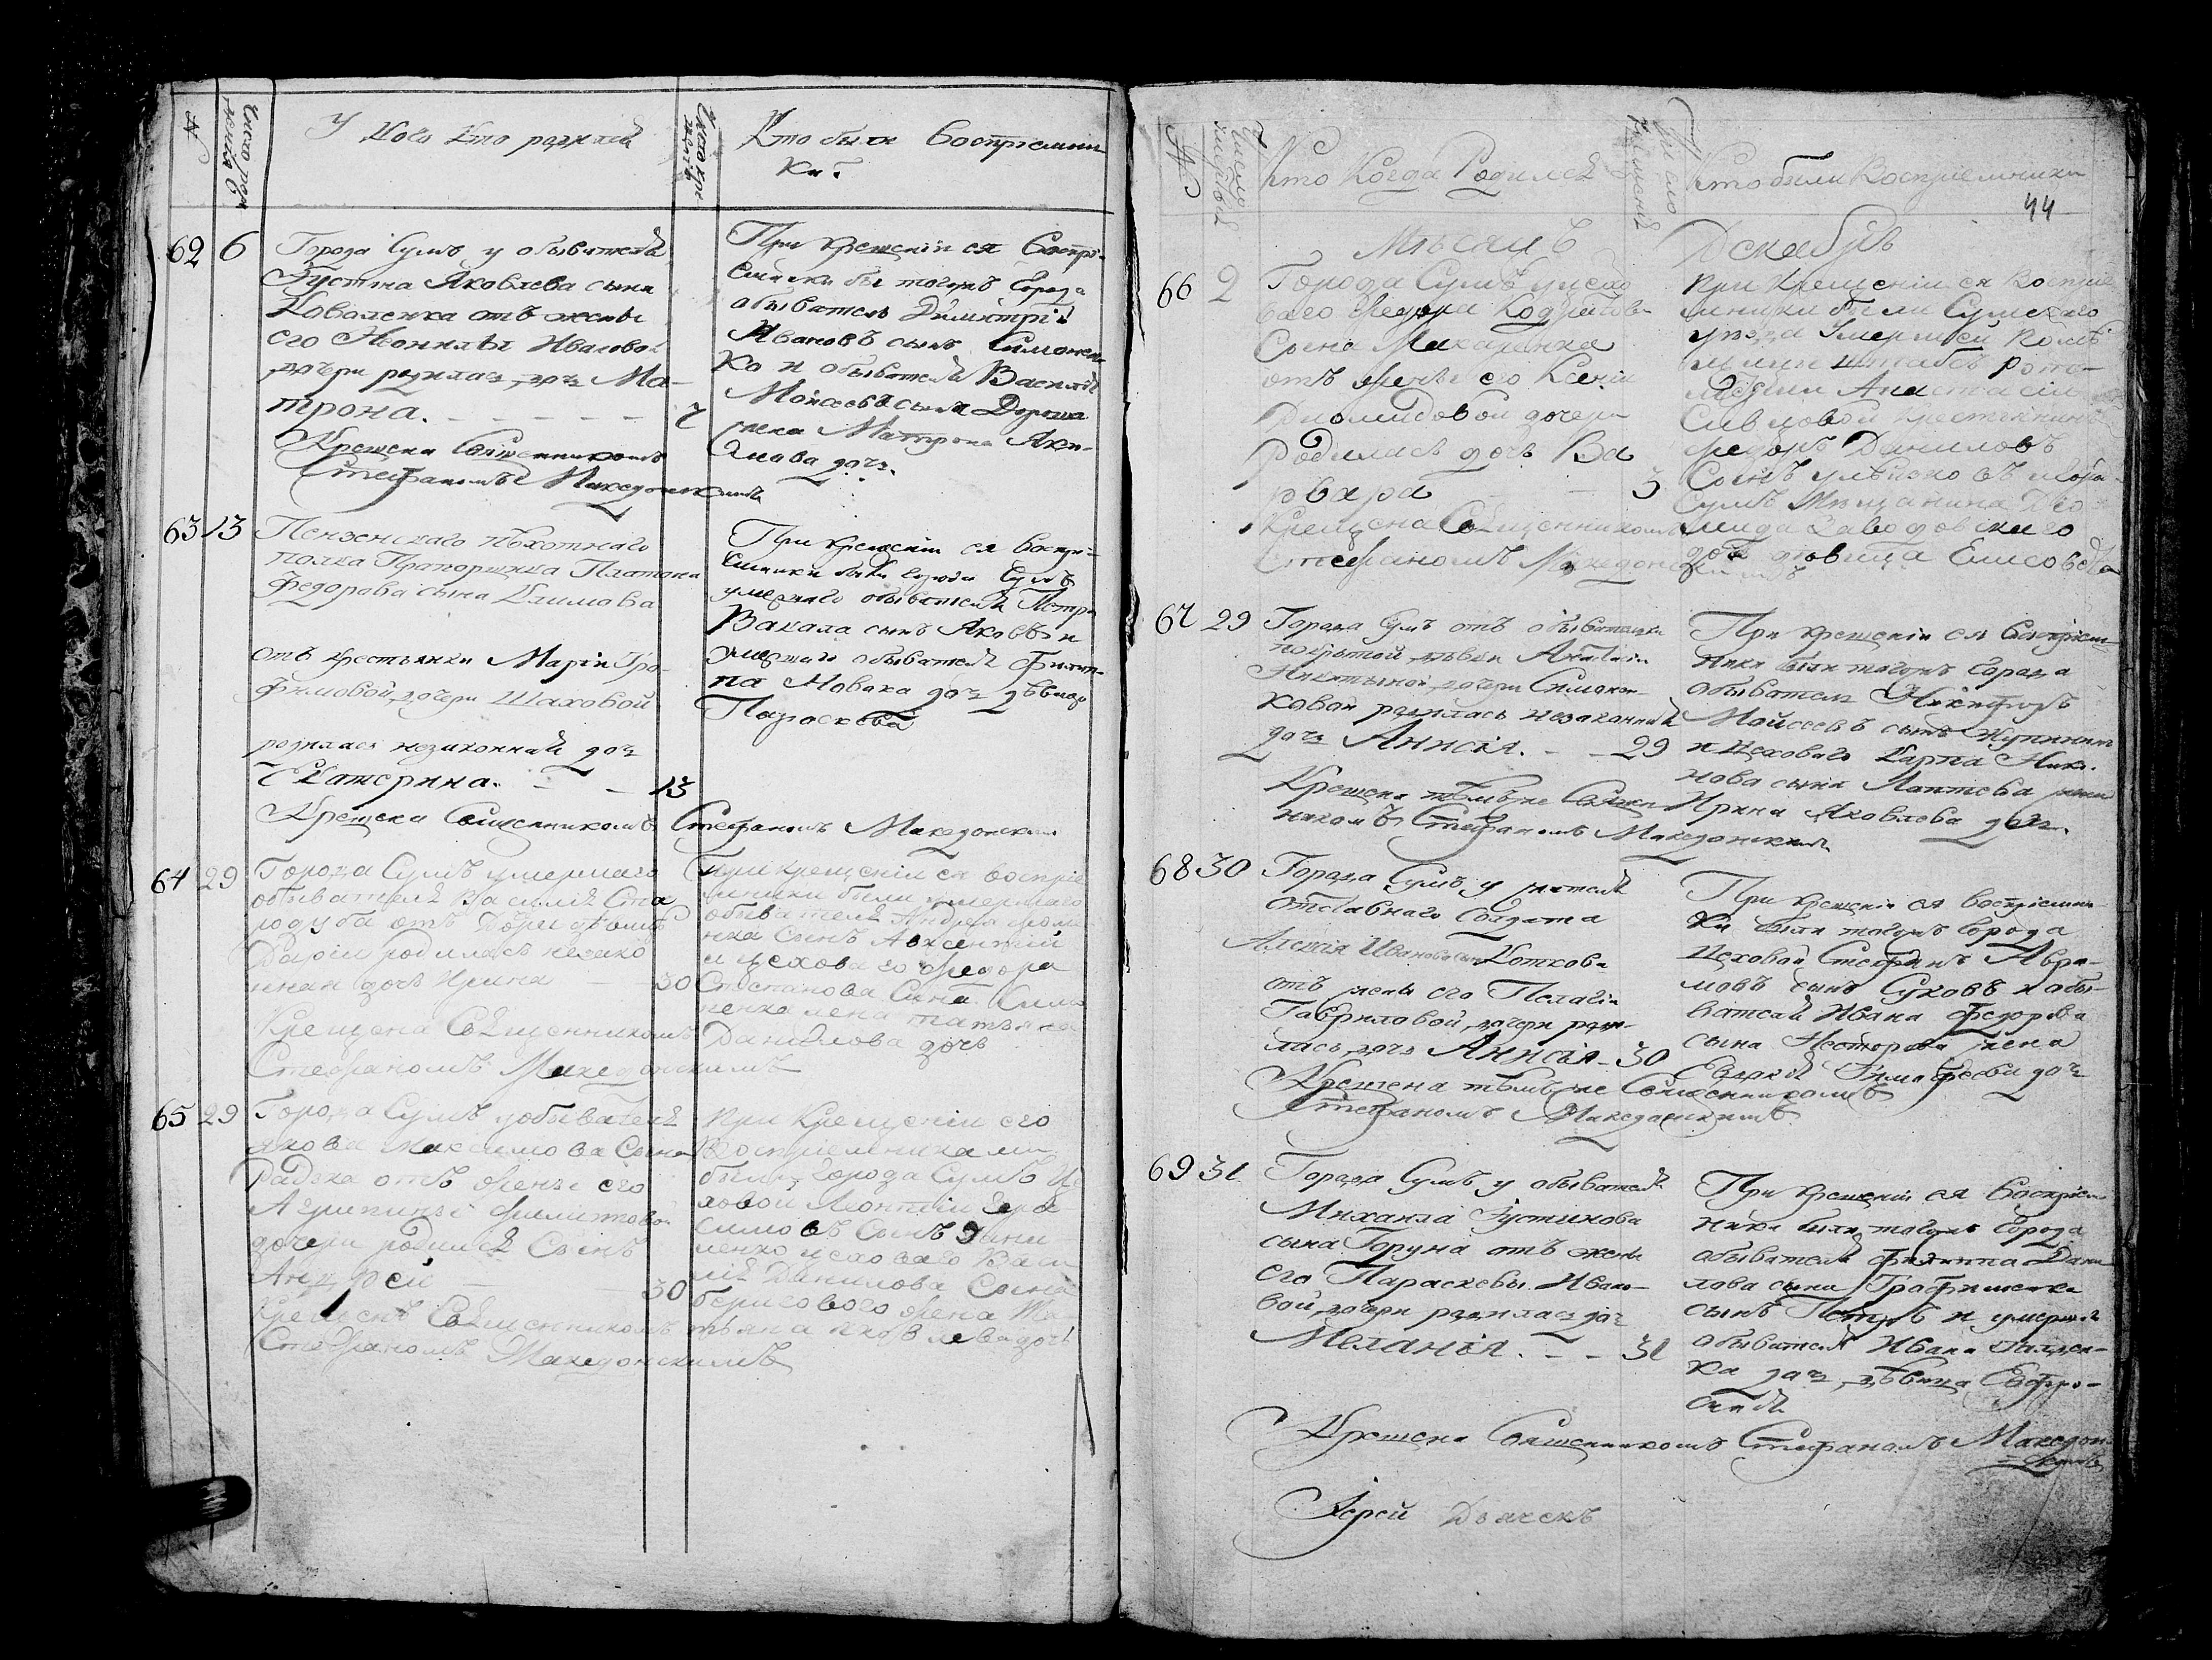 №
Число рожденія
У кого кто родился
Число крещенія
Кто были восприемни
ки.
62 6
Города Сумъ у обывателя
Густина Яковлева сына
Коваленка отъ жены
его Неонилы Ивановой
дочери родилась дочь Ма-
трона. 7
Крещена Священникомъ
Стефаномъ Македонскимъ
При крещеніи ея воспрі-
емники бы тогожъ города
обыватель Димитрій
Ивановъ сынъ Симонен-
ко и обывателя Василія
Моисеева сына
жена Матрона
дочь.
63 13
Пензенскаго пѣхотнаго
полка Прапорщика Платона
Федорова сына Климова
отъ крестьянки Маріи Тро-
фимовой дочери Шаховой
родилася незаконная дочь
Екатерина. 13
Крещена Священникомъ Стефаномъ Македонскимъ
При крещеніи ея воспрі-
емники были города Сумъ
умершаго обывателя Петра
Вакала сынъ Яковъ и
умершаго обывателя Филип-
па Новака дочь дѣвица
Параскева
64 29
Города Сумъ умершаго
обывателя Василія Ста
родуба отъ дочери дѣвицы
Даріи родилась незако
нная дочь Ирина 30
Крещена Священникомъ
Стефаномъ Македонскимъ
При крещеніи ея воспріе
мники были умершаго
обывателя Андрея
сынъ Авксентій
и цеховаго Федора
Степанова сына
жена Татьяна
Данилова дочь
65 29
Города Сумъ у обывателя
Якова Максимова сына
Радька отъ жены его
Агрипины Филиповой
дочери родился сынъ
Андрей 30
Крещенъ Священникомъ
Стефаномъ Македонскимъ
При крещеніи его
Воспріемниками
были города Сумъ це
ховой Леонтій Гера
симовъ сынъ
ленко цеховаго Васи
лія Данилова сына
жена Та
тьяна Яковлева дочь
№
Число
Кто когда родился
Число
Кто были воспріемники
44
Мѣсяцъ Декабрь
66 2
Города Сумъ у цехо
ваго Федора Кодратова
сына Макаренка
отъ жены его Ксеніи
Диомидовой дочери
родилась дочь Ва
рвара 3
Крещена Священникомъ
Стефаномъ Македонскимъ
При крещеніи ея воспріе
мники были Сумскаго
уѣзда умершей
штабсъ рот-
Анастасіи
крестьянинъ
Федоръ Даниловъ
сынъ
Сумъ мѣщанина
Заводовскаго
дочь дѣвица Елисавета
67 29
Города Сумъ отъ обывательки
покрытой дѣвки Анастасіи
Никитиной дочери Симонен-
ковой родилась незаконная
дочь Анисія. 29
Крещена тѣмъже Священ-
никомъ Стефаномъ Македонскимъ
При крещеніи ея воспріем-
ники были тогожъ города
обыватель Никифоръ
Моисеевъ сынъ
и цеховаго Карпа
нова сына Лаптева жена
Ирина Яковлева дочь.
68 30
Города Сумъ у жителя
отставнаго солдата
Алексія Иванова сына Коткова
отъ жены его Пелагіи
Гавриловой дочери роди-
лась дочь Анисія 30
Крещена тѣмъже Священникомъ
Стефаномъ Македонскимъ
При крещеніи ея воспріемни-
ки были тогожъ города
цеховой Стефанъ Авра-
мовъ сынъ Суховъ и обы-
вателя Ивана Федорова
сына Несторова жена
Евдокія Тимофеева дочь
69 31
Города Сумъ у обывателя
Михаила Густинова
сына Горуна отъ жены
его Параскевы Ивано-
вой дочери родилась дочь
Меланія. 31
При крещеніи ея воспріем
ники были тогожъ города
обывателя Филиппа Дани
лова сына Трофименка
сынъ Петръ и умершаго
обывателя Ивана
ка дочь дѣвица Евфро-
синія
Крещена Священникомъ Стефаномъ Македон-
скимъ
Іерей Дьячекъ